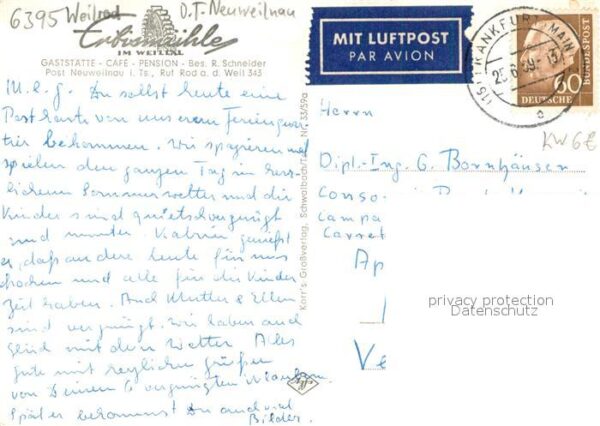 6395 Weilrod O.T. Neuweilnau
Erbismühle
IM WEILTAL
GASTSTÄTTE - CAFÉ - PENSION - Bes. R. Schneider
Post Neuweilnau i. Ts., Ruf Rod a. d. Weil 343
Du sollst heute eine
Postkarte von unserem Ferienquar-
tier bekommen. Wir spazieren und
spielen den ganzen Tag in herr-
lichem Sommerwetter und die
Kinder sind quietschvergnügt
und munter. Kabrin genießt
er, daß andere heute für uns
kochen und alle für die Kinder
Zeit haben. Auch Mutter & Ellen
sind vergnügt. Wir haben auch
Glück mit dem Wetter. Alles
Gute mit herzlichen Grüßen
von Deinen 6 vergnügten
Später bekommst Du auch viel
Bilder.
Korr's Großverlag, Schwalbach/Ts., Nr. 33/59a
MIT LUFTPOST
PAR AVION
FRANKFURT (MAIN)
DEUTSCHE BUNDESPOST
60
KW 6E
Herrn
Dipl.-Ing. G. Bornhäusen
Conso
Campa
Carret
Ap
Ve
privacy protection
Datenschutz